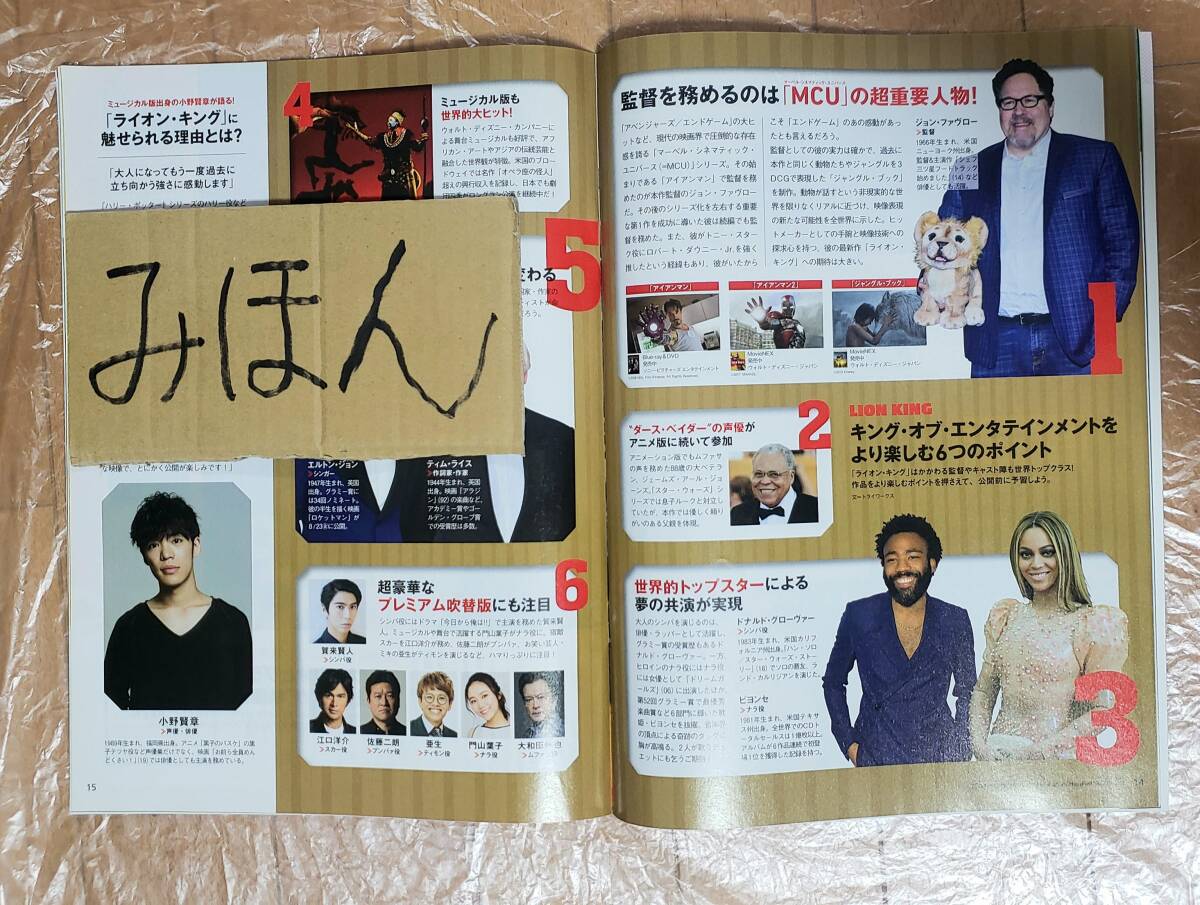 ミュージカル版出身の小野賢章が語る!
「ライオン・キング」に
魅せられる理由とは?
「大人になってもう一度過去に
立ち向かう強さに感動します」
「ハリー・ポッターシリーズのハリー役など
みほん
な映像で、とにかく公開が楽しみです!」
小野賢章
声優・俳優
15
4
ミュージカル版も
世界的大ヒット!
ウォルト・ディズニー・カンパニーに
よる舞台ミュージカルも好評で、アフ
リカン・アートやアジアの伝統芸能と
融合した世界観が特徴。米国のブロー
ドウェイでは名作「オペラ座の怪人」
超えの興行収入を記録し、日本でも劇
5
変わる
エルトン・ジョン
シンガー
1947年生まれ、英国
出身。グラミー賞に
は34回ノミネート。
彼の半生を描く映画
「ロケットマン」が
8/23㊎に公開。
ティム・ライス
作詞家・作家
1944年生まれ、英国
出身。映画「アラジ
ン」(92)の楽曲など、
アカデミー賞やゴー
ルデン・グローブ賞
での受賞歴は多数。
6
超豪華な
プレミアム吹替版にも注目
シンバ役にはドラマ「今日から俺は!!」で主演を務めた賀来賢
人。ミュージカルや舞台で活躍する門山葉子がナラ役に。宿敵
スカーを江口洋介が務め、佐藤二朗がプンバァ、お笑い芸人・
ミキの亜生がティモンを演じるなど、ハマりっぷりに注目!
賀来賢人
シンバ役
江口洋介
スカー役
佐藤二朗
プンバァ役
亜生
ティモン役
門山葉子
ナラ役
監督を務めるのは「MCU」の超重要人物!
マーベル・シネマティック・ユニバース
「アベンジャーズ/エンドゲーム」の大ヒ
ットなど、現代の映画界で圧倒的な存在
感を誇る「マーベル・シネマティック・
ユニバース(=MCU)」シリーズ。その始
まりである「アイアンマン」で監督を務
めたのが本作監督のジョン・ファヴロー
だ。その後のシリーズ化を左右する重要
な第1作を成功に導いた彼は続編でも監
督を務めた。また、彼がトニー・スター
ク役にロバート・ダウニー・Jr.を強く
推したという経緯もあり、彼がいたから
こそ「エンドゲーム」のあの感動があっ
たとも言えるだろう。
監督としての彼の実力は確かで、過去に
本作と同じく動物たちやジャングルを3
DCGで表現した「ジャングル・ブック」
を制作。動物が話すという非現実的な世
界を限りなくリアルに近づけ、映像表現
の新たな可能性を全世界に示した。ヒッ
トメーカーとしての手腕と映像技術への
探求心を持つ、彼の最新作「ライオン・
キング」への期待は大きい。
ジョン・ファヴロー
監督
1966年生まれ、米国
ニューヨーク州出身。
監督&主演作「シェフ
三ツ星フードトラック
始めました」(14)など
俳優としても活躍。
「アイアンマン」
Blu-ray&DVD
発売中
ソニー・ピクチャーズ エンタテインメント
「アイアンマン2」
MovieNEX
発売中
ウォルト・ディズニー・ジャパン
「ジャングル・ブック」
MovieNEX
発売中
ウォルト・ディズニー・ジャパン
1
2
"ダース・ベイダー"の声優が
アニメ版に続いて参加
アニメーション版でもムファサ
の声を務めた88歳の大ベテラ
ン、ジェームズ・アール・ジョ
ーンズ。「スター・ウォーズ」シ
リーズでは息子ルークと対立し
ていたが、本作では優しく頼り
がいのある父親を体現。
LION KING
キング・オブ・エンタテインメントを
より楽しむ6つのポイント
「ライオン・キング」はかかわる監督やキャスト陣も世界トップクラス!
作品をより楽しめるポイントを押さえて、公開前に予習しよう。
文=トライワークス
世界的トップスターによる
夢の共演が実現
大人のシンバを演じるのは、
俳優・ラッパーとして活躍し、
グラミー賞の受賞歴もあるド
ナルド・グローヴァー。一方、
ヒロインのナラ役にはナラ役
には女優として「ドリームガ
ールズ」(06)に出演したほか、
第52回グラミー賞で最優秀
楽曲賞など6部門に輝いた歌
姫・ビヨンセを抜擢。
ドナルド・グローヴァー
シンバ役
1983年生まれ、米国カリフ
ォルニア州出身。「ハン・ソロ
/スター・ウォーズ・ストー
リー」(18)でソロの悪友、ラ
ンド・カルリジアンを演じた。
ビヨンセ
ナラ役
1981年生まれ、米国テキサ
ス州出身。全世界でのCDト
ータルセールスは1億枚以上。
アルバムが6作品連続で初登
場1位を獲得した記録を持つ。
3
14